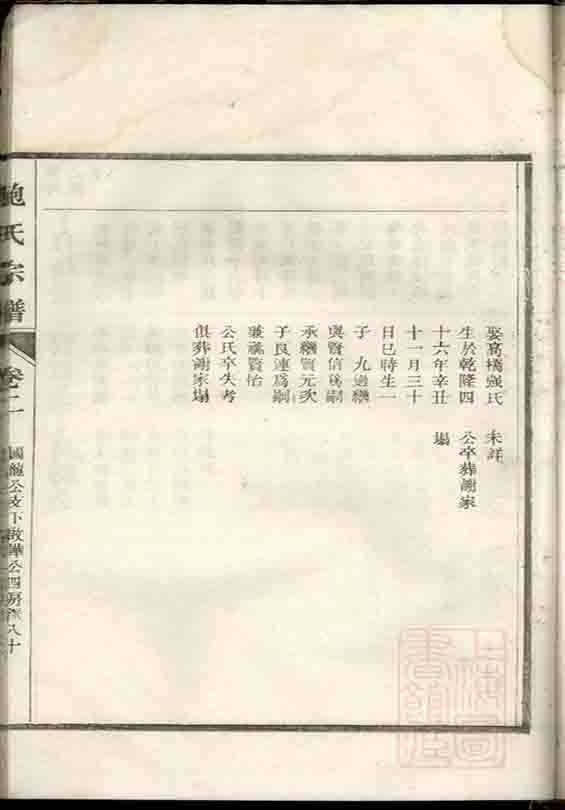 娶高橋強氏
生於乾隆四
十六年辛丑
十一月三十
日巳時生一
子　九過繼
與賢信為嗣
承繼賢元次
子良連為嗣
兼祧賢怡
公氏卒失考
俱葬謝家塲
未詳
公卒葬謝家
塲
鮑氏宗譜
卷二
公支下啟 公四房 八十
上海圖
書館藏